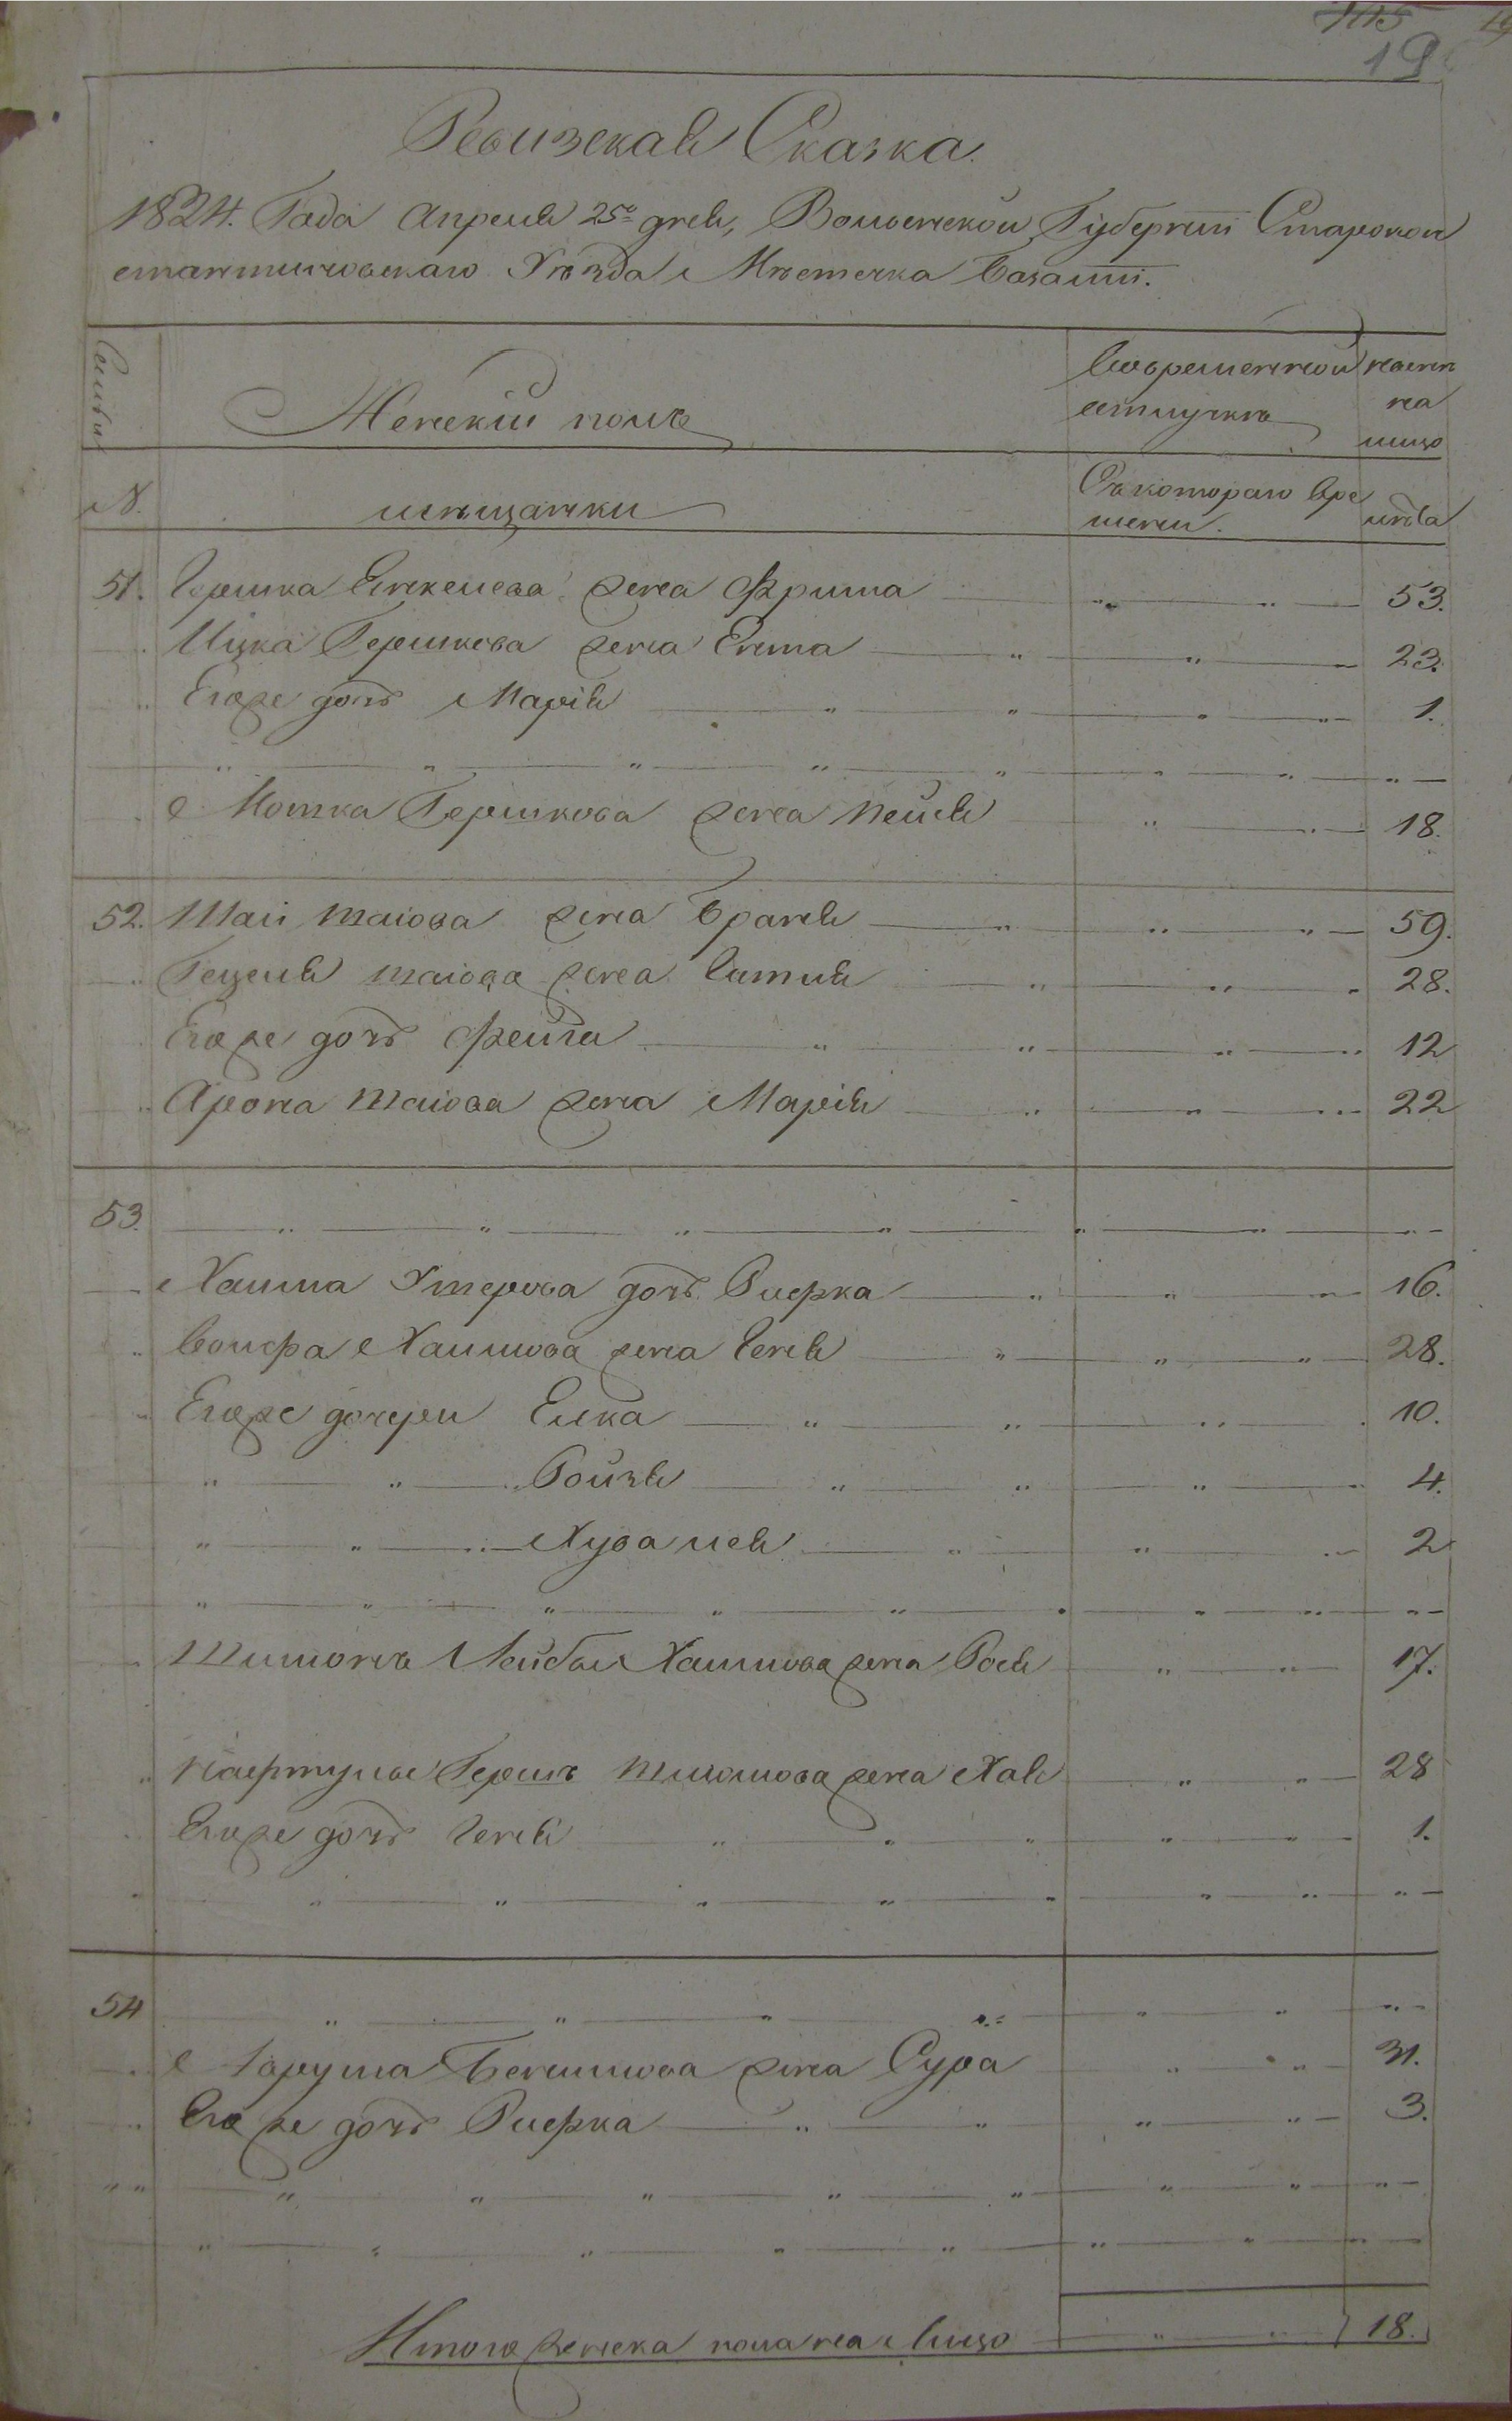 19
Ревизская Сказка.
1824. Года Апреля 25го дня, Волынской Губернiи Староко
стантиновскаго Уѣзда Мѣстечка Базалiи.
Семьи
Женскiй полъ
Во временной
отлучкѣ
налич
на
лицо
№.
мѣщанки
Съ котораго вре
мени.
лѣта
51. Гершка жена Фрима 53.
Ицка Гершкова жена Ента 23.
Его же дочь Марiя 1.
Мошка Гершкова жена Пейся 18.
52. Шаи Шаiова жена Браня 59.
Гецеля Шаiова жена 28.
Его же дочь Фейга 12
Арона Шаiова жена Марiя 22
53.
Хаима Умерова дочь Рифка 16.
Волфа Хаимова жена Геня 28.
Его же дочери Елка 10.
Ройзя 4.
2
Шимонъ Лейбы Хаимова жена Рося 17.
Гершъ Шлiомова жена Хая 28
Его же дочь Геня 1.
54
Бенимова жена Сура 31.
Его же дочь Рифка 3.
Итого женска пола на лицо 18.